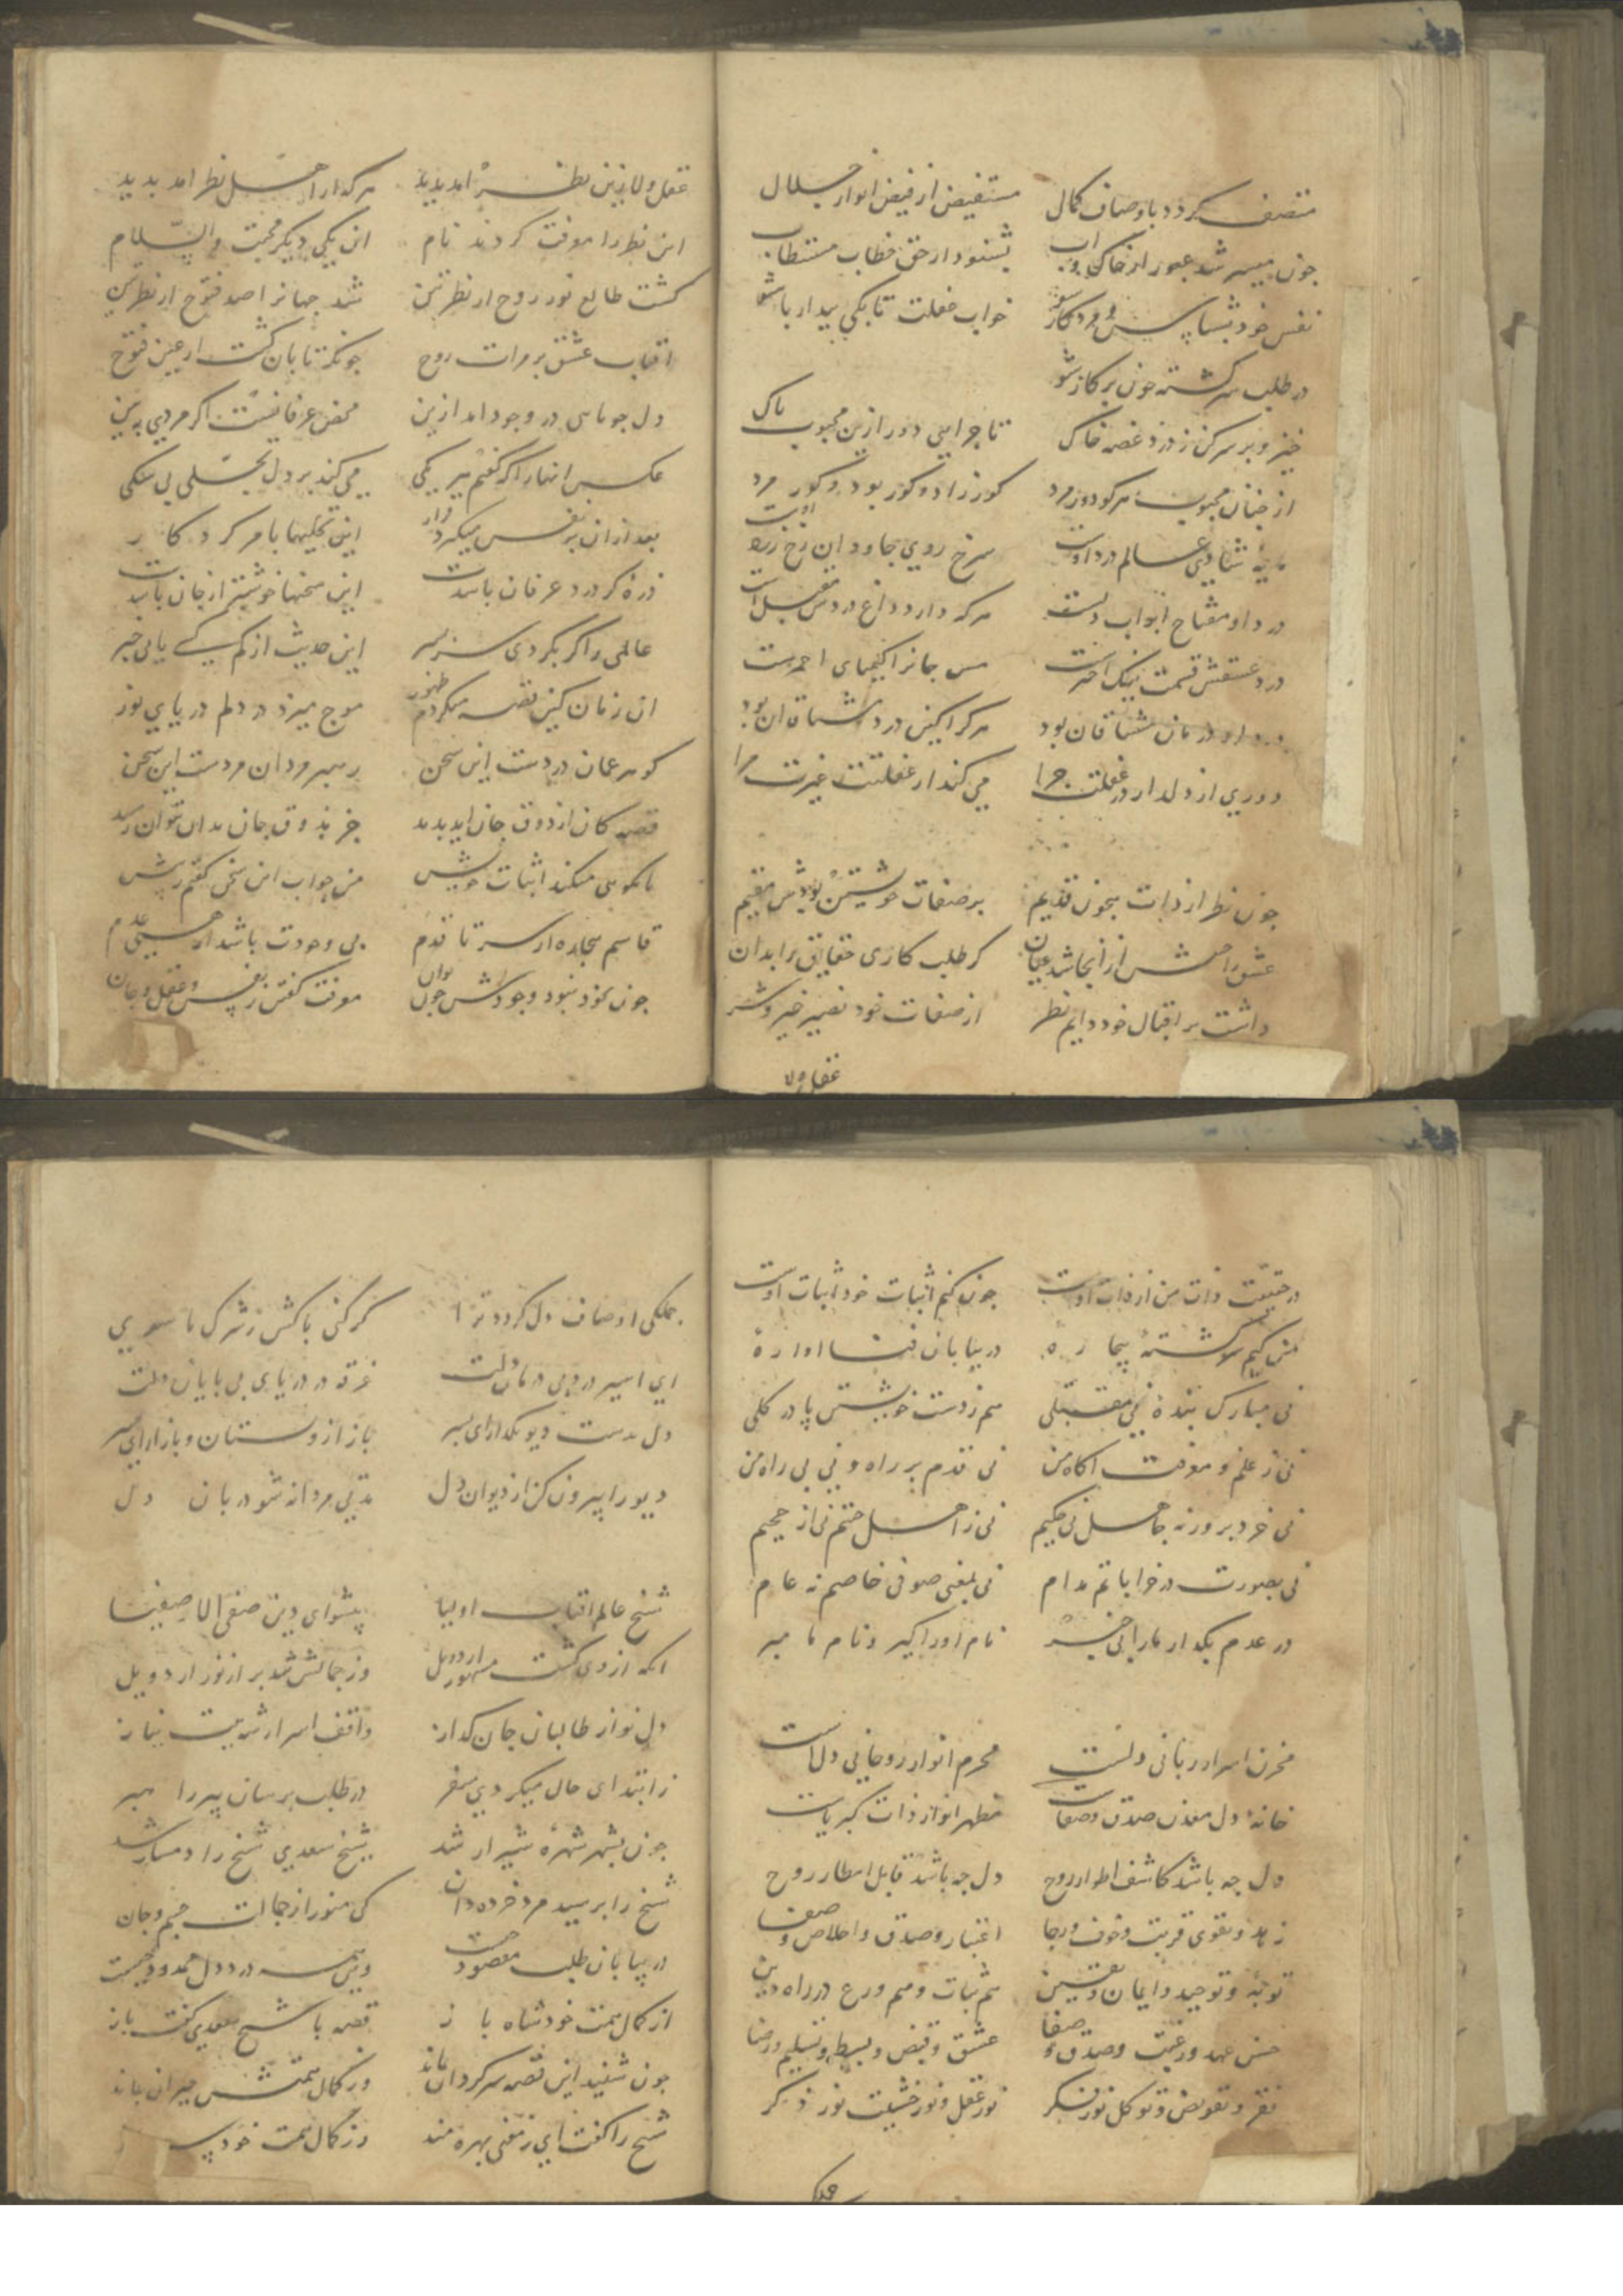 متصف کردد باوصاف کمال مستفیض از فیض انوار جلال
جون میسر شد عبور از خاک و اب بشنود از حق خطاب مستطاب
نفس خود بشناس و مرد کار شو خواب غفلت تا بکی بیدار باش
در طلب سرکشته جون برکار شو
خیز و بر سر کن ز درد غصه خاک تا جرایی دور ازین محبوب باک
از جنان محبوب هر کو دور مرد کور زاد و کور بود و کور مرد
مایهٔ شادی عالم درد اوست سرخ روی جاودان رخ زرد اوست
درد او مفتاح ابواب دلست هر که دارد داغ دردش مقبل است
درد عشقش قسمت نیک اخترست مس جانرا کیمیای احمرست
درد او درمان مشتاقان بود هر کرا این درد باشد آن بود
دوری از دلدار در غفلت جرا می کند از غفلتت غیرت مرا
جون نظر از ذات بیجون قدیم بر صفات خویشتن بودش مقیم
عشق را جنبش از انجا شد عیان کز طلب کاری حقایق را بدان
داشت بر افعال خود دایم نظر از صفات خود بصیر خیر و شر
عقل ولا
عقل ولا زین نظر امد بدید هر که از اهل نظر امد بدید
این نظر را معرفت کردند نام ان یکی دیکر محبت والسلام
کشت طالع نور روح از نظرتین شد جهانرا صد فتوح از نظرتین
افتاب عشق بر مرات روح جونکه تابان کشت از عین فتوح
دل جو ماهی در وجود امد ازین محض عرفانست اکر مردی ببین
عکس انها را که کفتم بیر یکی می کند بر دل تجلی بی شکی
بعد از ان بر نفس میکیرد قرار این تجلیها بامر کردکار
ذرهٔ کز درد عرفان بایدت این سخنها خوشتر از جان بایدت
عالمی را کر بکردی سر بسر این حدیث از کم کسی یابی خبر
ان زمان کین قصه میکردم ظهور موج میزد در دلم دریای نور
کوهر عمان دردست این سخن رهبر مردان مردست این سخن
قصهٔ کان از ذوق جان اید بدید جز بذوق جان بدان نتوان رسید
من جواب این سخن کفتم ز پیش
قاسم بیجاره از سر تا قدم بی وجودت باشد از هستی عدم
جون بخود نبود وجودش جون توان معرفت کفتن ز نفس و عقل و جان
در حقیقت ذات من از ذات اوست جون کنم اثبات خود اثبات اوست
من کیم سرکشتهٔ بیجارهٔ در بیابان فنا اوارهٔ
نی مبارک بندهٔ نی مقبلی هم ز دست خویشتن پا در کلی
نی ز علم و معرفت اکاه من نی قدم بر راه و نی بی راه من
نی خردبرور نه جاهل نی حکیم نی ز اهل جنتم نی از جحیم
نی بصورت در خراباتم مدام نی بمعنی صوفی خاصم نه عام
در عدم بکذار ما را بی خبر نام او را کیر و نام ما مبر
مخزن اسرار ربانی دلست محرم انوار روحانی دل است
خانهٔ دل معدن صدق و صفات مظهر انوار ذات کبریاست
دل جه باشد کاشف اطوار روح دل جه باشد قابل امطار روح
زهد و تقوی قربت و خوف و رجا اعتبار و صدق و اخلاص و صفا
توبه و توحید و ایمان و یقین هم ثبات و هم ورع در راه دین
حسن عهد و رغبت و صدق و صفا عشق و قبض و بسط و تسلیم و رضا
فقر و تفویض و توکل نور فکر نور عقل و نور خشیت نور ذکر
جملکی اوصاف دل کردد ترا کر کنی باکش ز شرک ماسوی
ای اسیر درد بی درمان دلت غرقه در دریای بی بایان دلت
دل بدست دیو مکذار ای بسر باز از دستان و بازار ای بسر
دیو را بیرون کن از دیوان دل مدتی مردانه شو دربان دل
شیخ عالم افتاب اولیا پیشوای دین صفی الاصفیا
انکه از وی کشت مشهور اردویل وز جمالش شد بر از نور اردویل
دل نواز طالبان جان کداز واقف اسرار شریعت نیاز
ز ابتدای حال میکردی سفر در طلب برسان پیر راهبر
جون بشهر شهرهٔ شیراز شد شیخ سعدی شیخ را دمساز شد
شیخ را برسید مرد خرده دان کی منور از جمالت جسم و جان
در بیابان طلب مقصود جیست وین همه درد دل ممدود جیست
از کمال همت خود شاه باز قصه با شیخ سعدی کفت باز
جون شنید این قصه سرکردان بماند وز کمال همتش حیران بماند
شیخ را کفت ای ز معنی بهره مند وز کمال همت خود